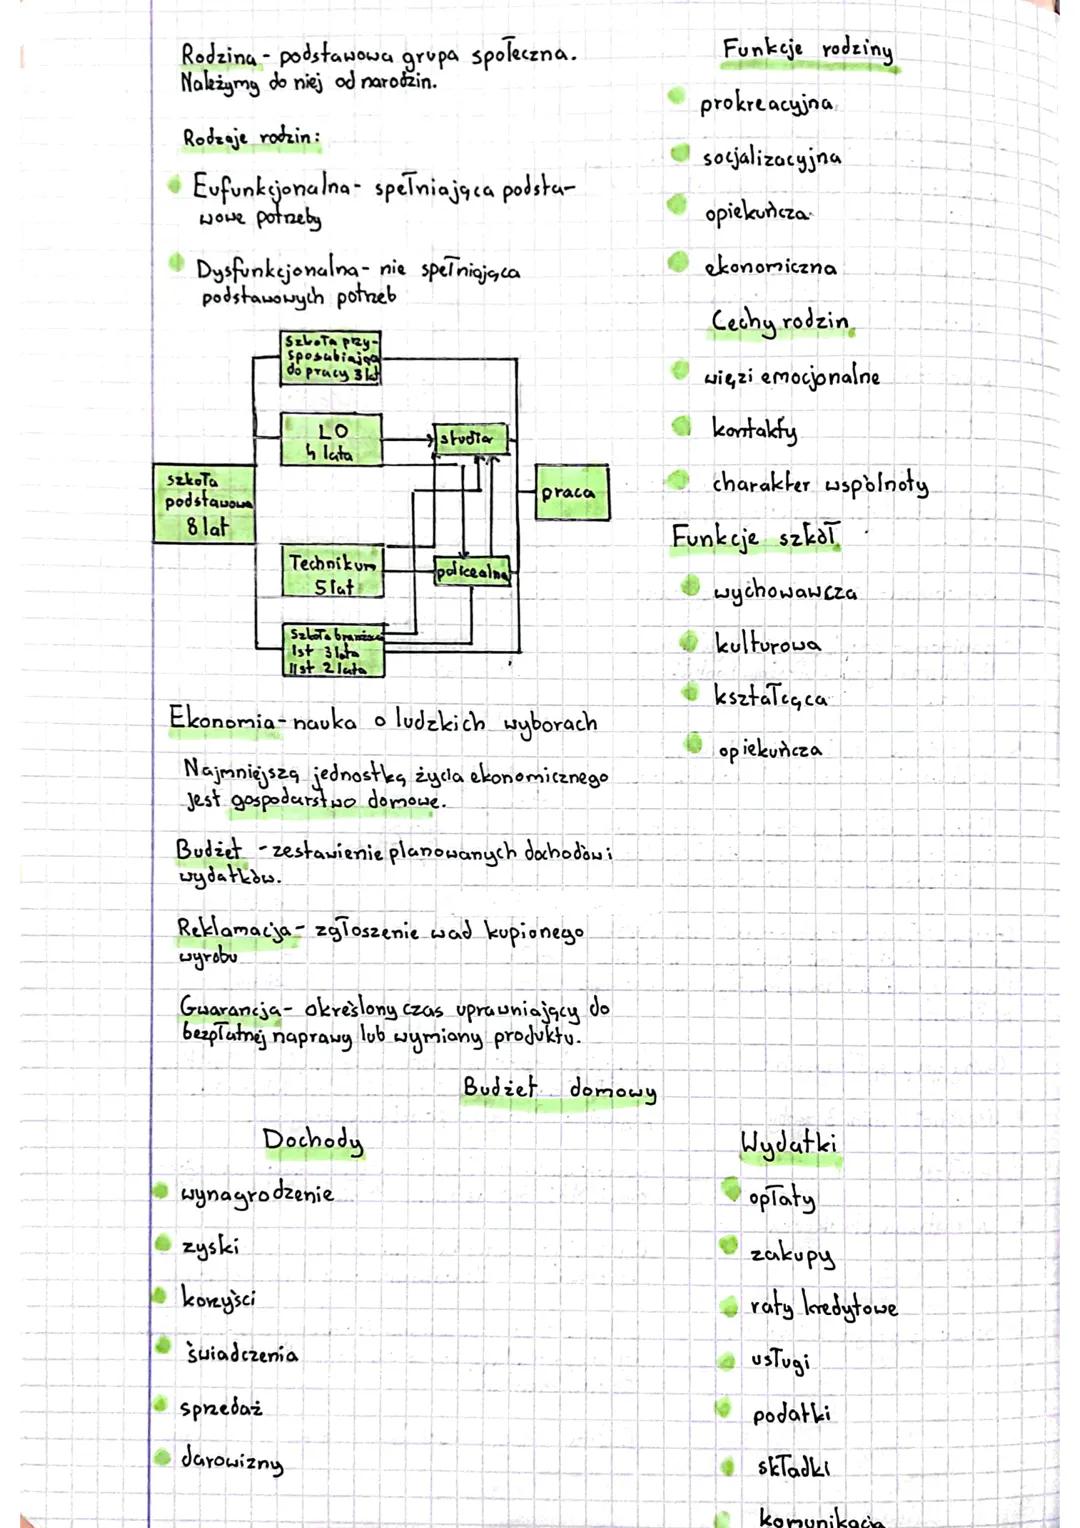 Rodzina - podstawowa grupa społeczna.
Należymy do niej od narodzin.
Rodzaje rodzin:
Eufunkcjonalna - spełniająca podsta-
wowe potrzeby
Dysfunkcjonalna - nie spełniająca
podstawowych potrzeb
szkoła przy-
sposabiająca
do pracy 3 lat
LO
4 lata
studia
szkoła
podstawowa
8 lat
praca
Technikum
5 lat
policealna
Szkoła branżowa
Ist 3 lata
IIst 2 lata
Funkcje rodziny
prokreacyjna
socjalizacyjna
opiekuńcza
ekonomiczna
Cechy rodzin
więzi emocjonalne
kontakty
charakter wspólnoty
Funkcje szkół
wychowawcza
kulturowa
kształcąca
opiekuńcza
Ekonomia - nauka o ludzkich wyborach
Najmniejszą jednostką życia ekonomicznego
jest gospodarstwo domowe.
Budżet - zestawienie planowanych dochodów i
wydatków.
Reklamacja - zgłoszenie wad kupionego
wyrobu
Gwarancja - określony czas uprawniający do
bezpłatnej naprawy lub wymiany produktu.
Budżet domowy
Dochody
wynagrodzenie
zyski
korzyści
świadczenia
sprzedaż
darowizny
Wydatki
opłaty
zakupy
raty kredytowe
usługi
podatki
składki
komunikacja